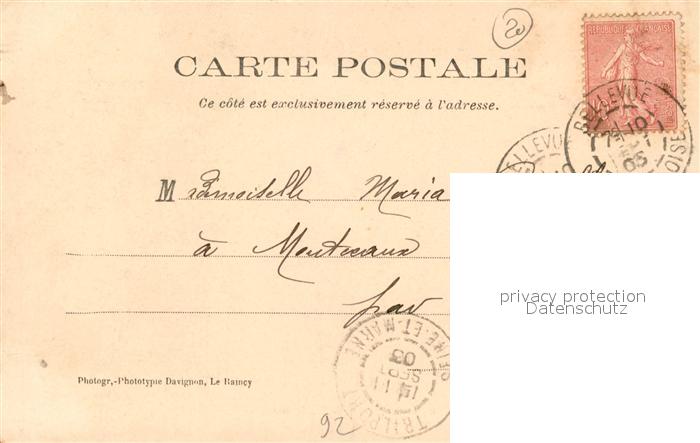 20
RÉPUBLIQUE FRANÇAISE
CARTE POSTALE
Ce côté est exclusivement réservé à l'adresse.
BELLEVUE
OISE
ELLEVU
Mademoiselle Maria
à Montceaux
par
privacy protection
Datenschutz
SEINE-ET-MARNE
03
SEPT
TRILPORT
Photogr,-Phototypie Davignon, Le Raincy
92